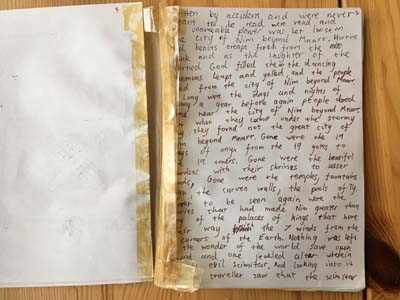 4
by accident and were never
to be read were read and
unnameable power was let loose on
the city of Nim beyond Mnarr. Horror
beasts creeps fresh from the
and as the laughter of the
Horned God filled them the dancing
leapt and yelled and the people
from the city of Nim beyond Mnarr.
Long were the days and nights of
a year, before again people dared
near the city of Nim beyond Mnarr,
when they came under the stormy
they found not the great city of
beyond Mnarr. Gone were the 19
of onyx from the 19 gates to
19 towers. Gone were the beautiful
with their shrines to lesser
Gone were the temples, fountains
the carven walls, the pools of
to be seen again were the
that had made Nim greater than
of the palaces of kings that hore
way the 7 winds from the
corners of the Earth. Nothing was left
the wonder of the world save open
and one jeweled altar wherein
evil scimitar. And looking into it
traveller saw that the scimitar